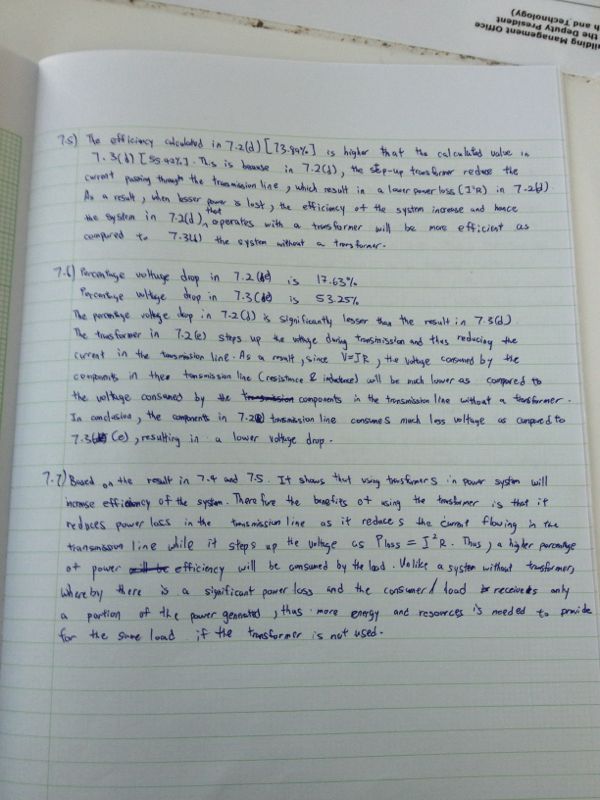 ilding Management Office
the Deputy President
h and Technology)
7.5) The efficiency calculated in 7.2(d) [73.89%] is higher that the calculated value in
7.3(d) [55.42%]. This is because in 7.2(d), the step-up transformer reduce the
current passing through the transmission line, which result in a lower power loss (I²R) in 7.2(d).
As a result, when lesser power is lost, the efficiency of the system increase and hence
the system in 7.2(d), that operates with a transformer will be more efficient as
compared to 7.3(d) the system without a transformer.
7.6) Percentage voltage drop in 7.2 is 17.63%
Percentage voltage drop in 7.3 is 53.25%
The percentage voltage drop in 7.2(d) is significantly lesser than the result in 7.3(d).
The transformer in 7.2(e) steps up the voltage during transmission and thus reducing the
current in the transmission line. As a result, since V=IR, the voltage consumed by the
components in the transmission line (resistance & inductance) will be much lower as compared to
the voltage consumed by the components in the transmission line without a transformer.
In conclusion, the components in 7.2 transmission line consumes much less voltage as compared to
7.3 (e), resulting in a lower voltage drop.
7.7) Based on the result in 7.4 and 7.5. It shows that using transformers in power system will
increase efficiency of the system. Therefore the benefits of using the transformer is that it
reduces power loss in the transmission line as it reduces the current flowing in the
transmission line while it steps up the voltage as Ploss = I²R. Thus, a higher percentage
of power efficiency will be consumed by the load. Unlike a system without transformer,
whereby there is a significant power loss and the consumer/load receives only
a portion of the power gennated, thus more energy and resources is needed to provide
for the same load if the transformer is not used.